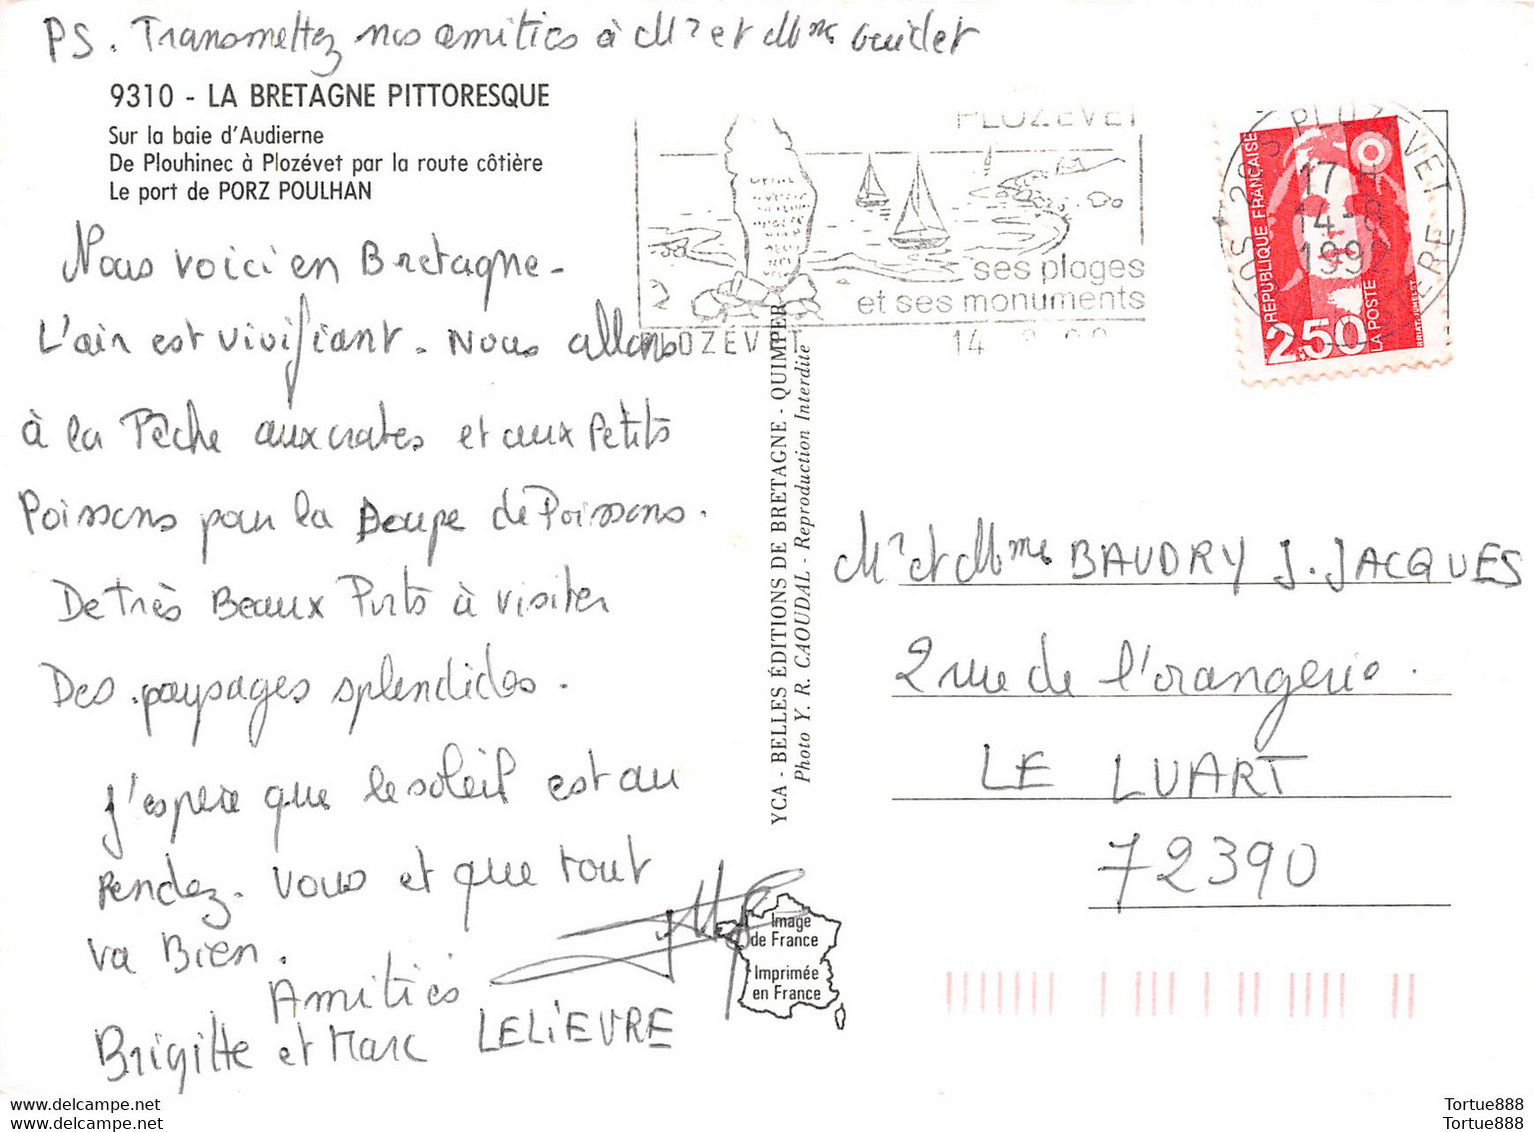 PS. Transmettez nos amitiés à Mr et Mme Guidet
9310 - LA BRETAGNE PITTORESQUE
Sur la baie d'Audierne
De Plouhinec à Plozévet par la route côtière
Le port de PORZ POULHAN
Nous voici en Bretagne.
L'air est vivifiant. Nous allons
à la Pêche aux crabes et aux Petits
Poissons pour la soupe de Poissons.
De très Beaux Ports à visiter
Des paysages splendides.
j'espère que le soleil est au
rendez-vous et que tout
va Bien.
Amitiés
Brigitte et Marc LELIEVRE
YCA - BELLES ÉDITIONS DE BRETAGNE - QUIMPER
Photo Y. R. CAOUDAL - Reproduction Interdite
Image
de France
Imprimée
en France
PLOZEVET
ses plages
et ses monuments
OZEVET 14
PLOZEVET
17 H
14-8
1992
REPUBLIQUE FRANÇAISE
2,50
LA POSTE
Mr et Mme BAUDRY J. JACQUES
2 rue de l'orangerie.
LE LUART
72390
Tortue888
Tortue888
Tortue888
Tortue888